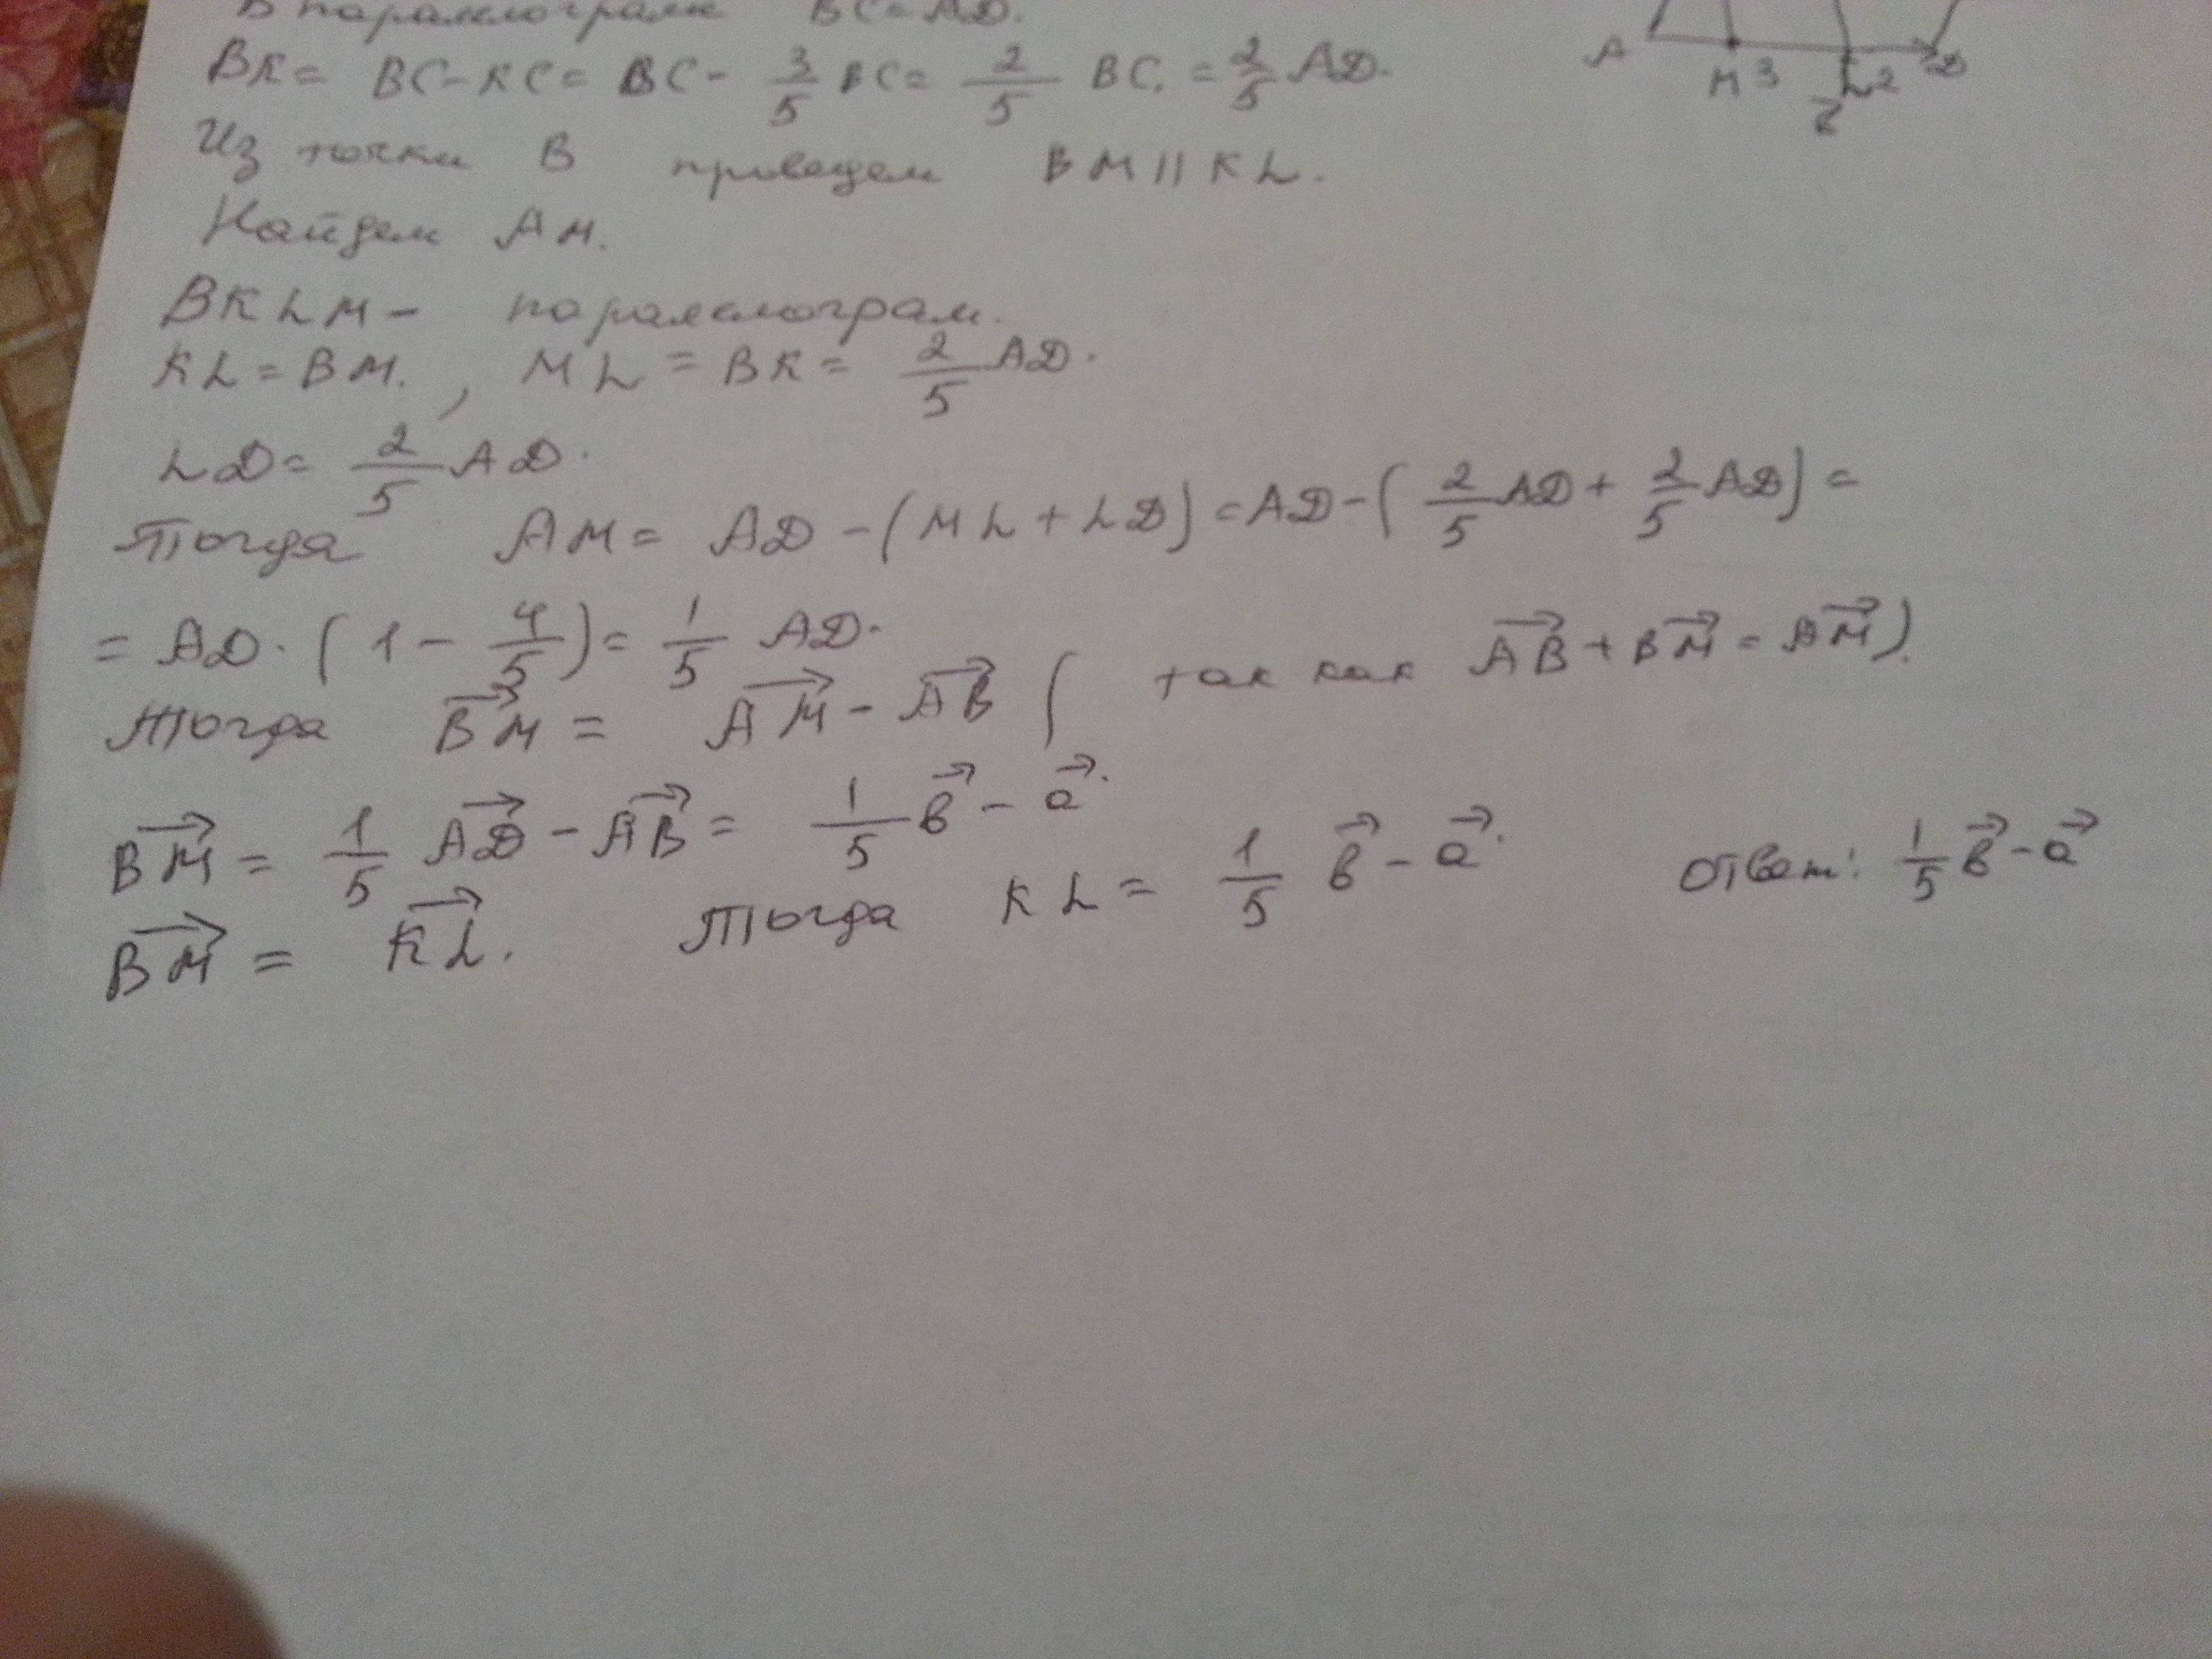 В паралелограме BC = AD.
BK = BC - KC = BC - 3/5 BC = 2/5 BC. = 2/5 AD.
A M 3 L 2 D
Из точки B проведем BM || KL.
Найдем AM.
BKLM - паралелограм.
KL = BM. , ML = BK = 2/5 AD.
LD = 2/5 AD.
Тогда AM = AD - (ML + LD) = AD - (2/5 AD + 2/5 AD) =
= AD · (1 - 4/5) = 1/5 AD.
Тогда B͞M⃗ = AM⃗ - AB⃗ ( так как AB⃗ + BM⃗ = AM⃗ ).
BM⃗ = 1/5 AD⃗ - AB⃗ = 1/5 в⃗ - a⃗.
BM⃗ = KL⃗. Тогда KL = 1/5 в⃗ - a⃗. Ответ: 1/5 в⃗ - a⃗